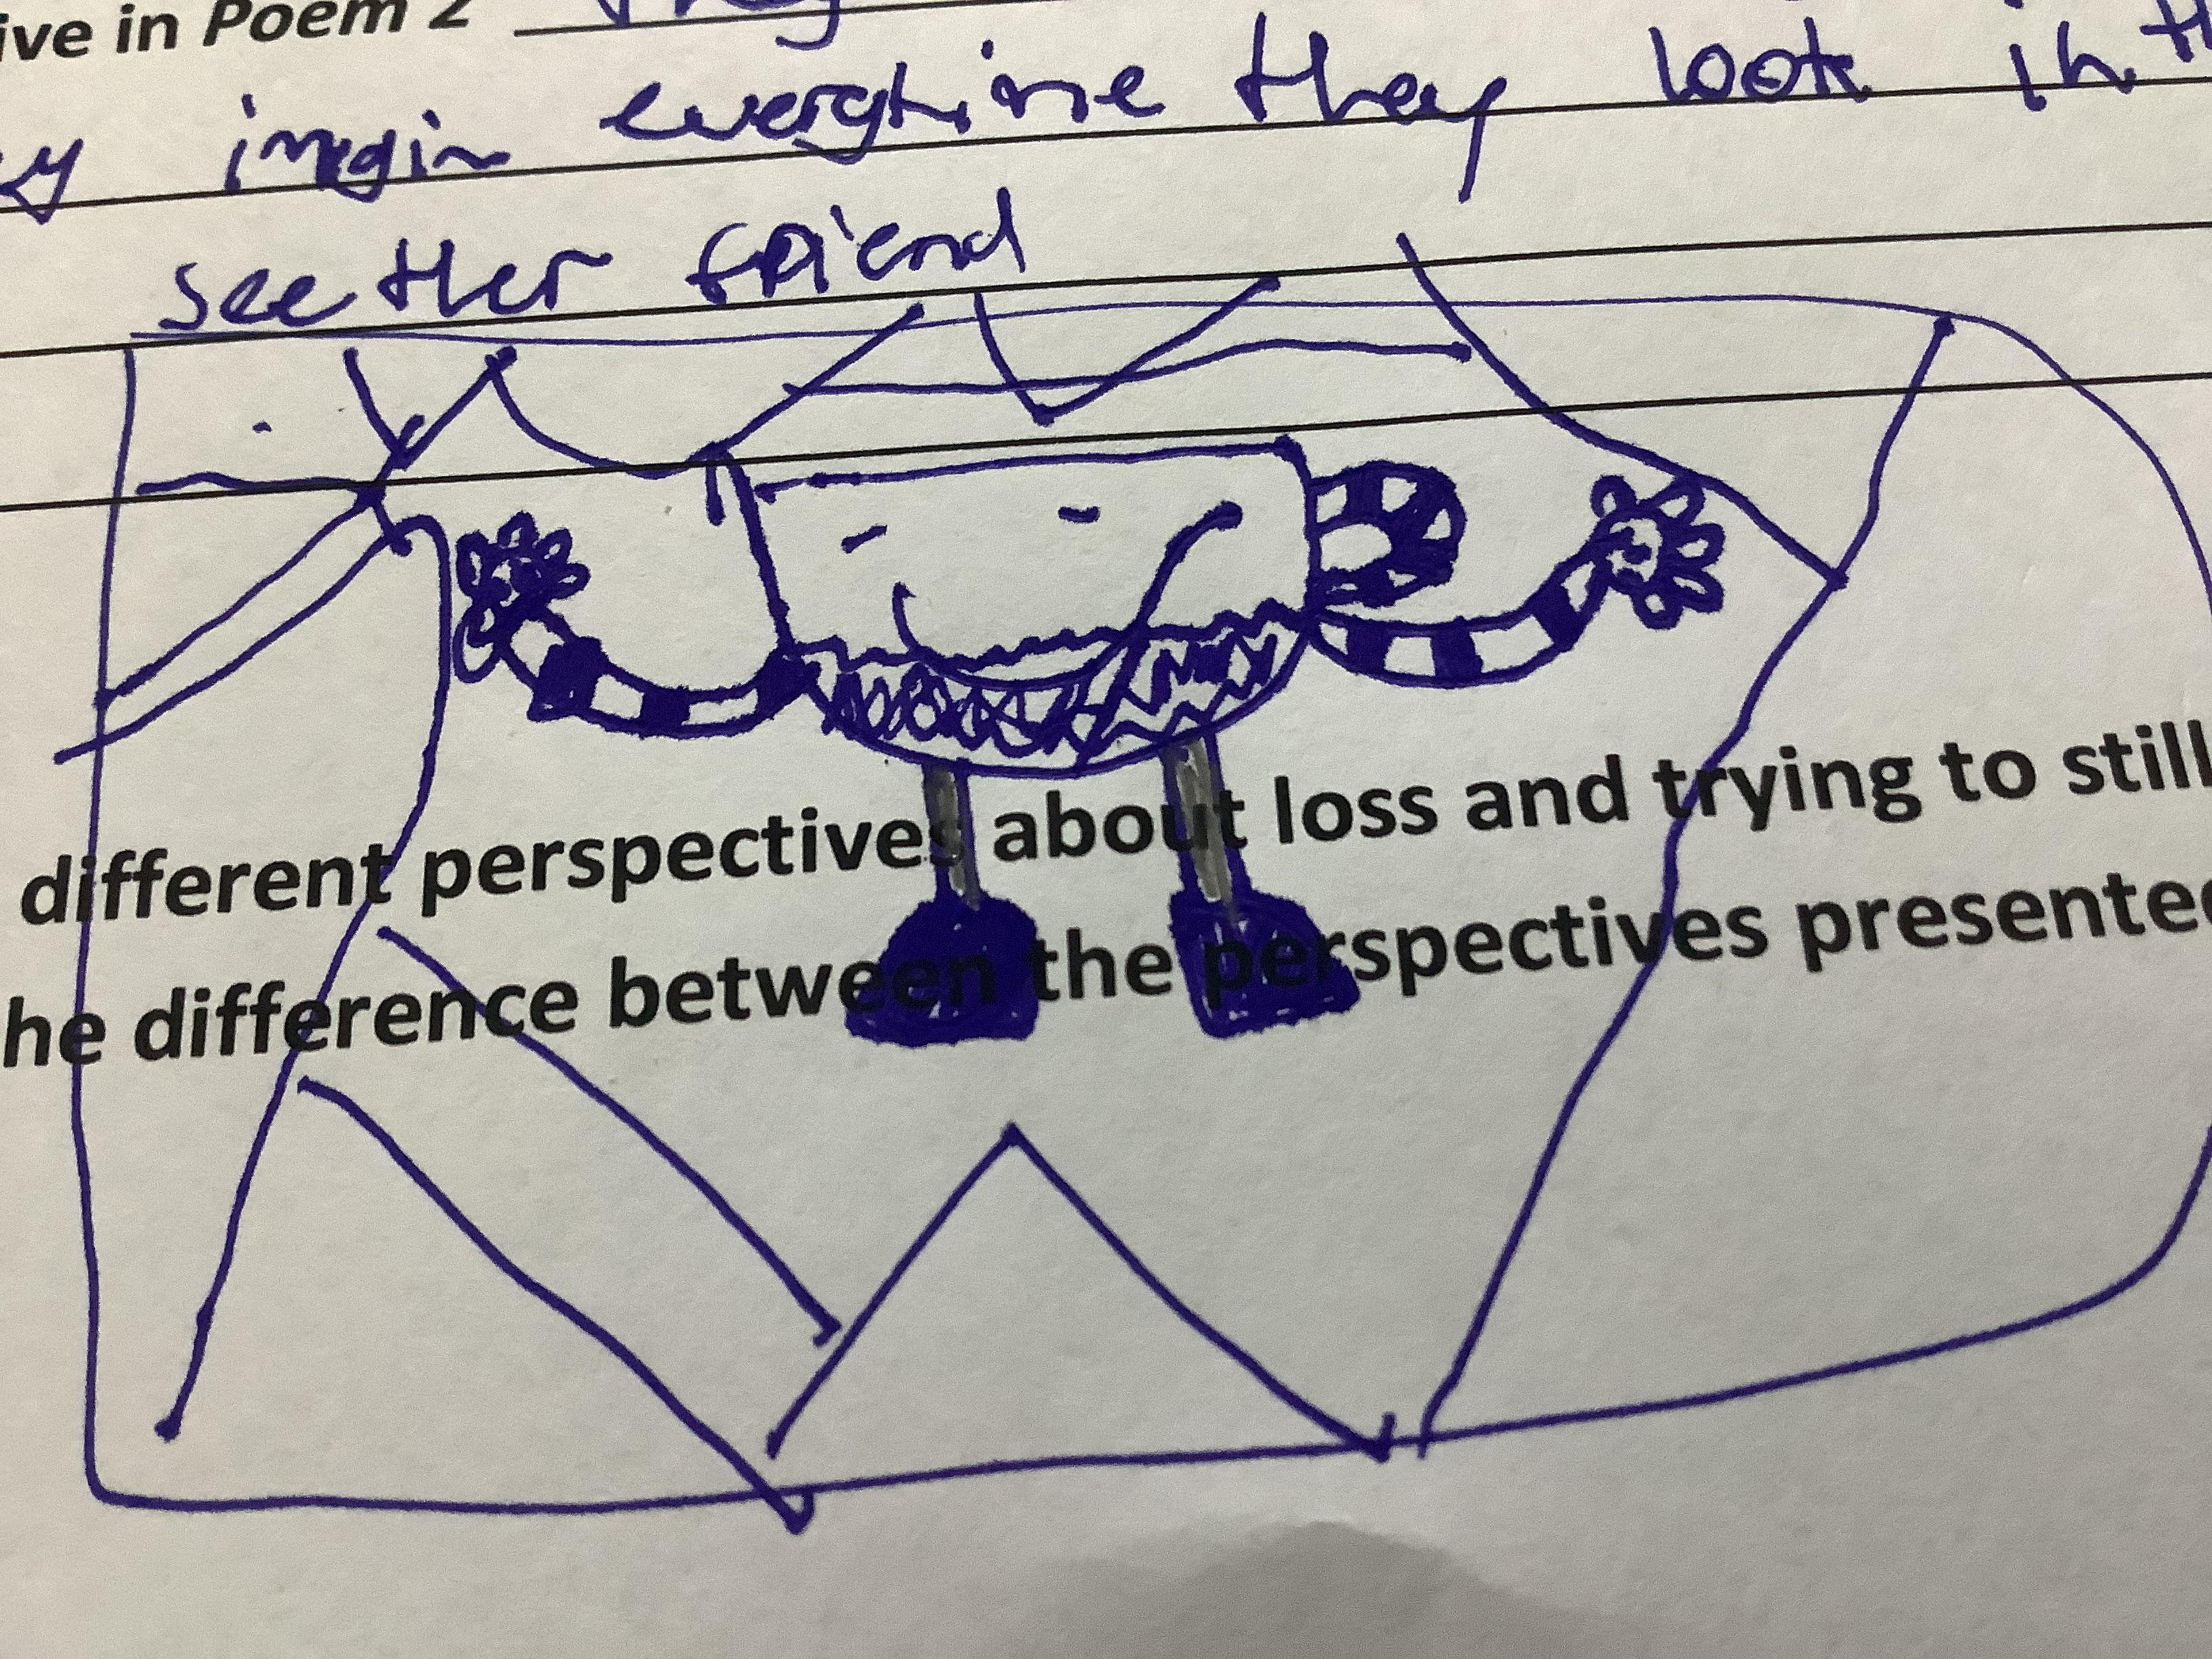 ive in Poem 2 They
y imgin everytime they look in th
see ther friend
different perspectives about loss and trying to still
he difference between the perspectives presented